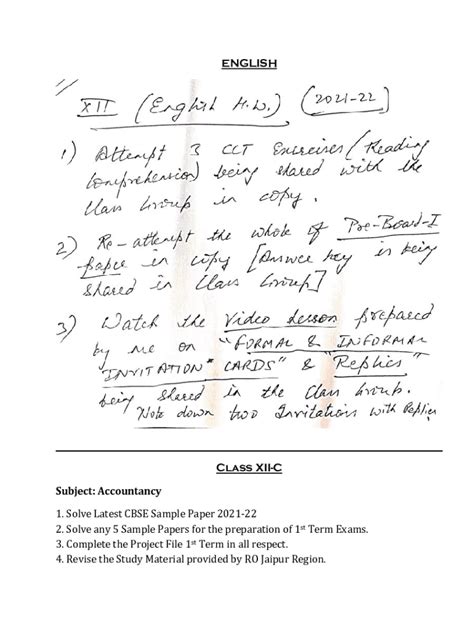 ENGLISH
XII (English H.W.) (2021-22)
1) Attempt 3 CCT Exercises (Reading
Comprehension) being shared with the
Class Group in copy.
2) Re-attempt the whole of Pre-Board-I
paper in copy [Answer key is being
shared in Class Group]
3) Watch the Video Lesson prepared
by me on "FORMAL & INFORMAL
INVITATION" CARDS" & "Replies"
being shared in the Class Group.
Note down two Invitations with Replies
CLASS XII-C
Subject: Accountancy
1. Solve Latest CBSE Sample Paper 2021-22
2. Solve any 5 Sample Papers for the preparation of 1st Term Exams.
3. Complete the Project File 1st Term in all respect.
4. Revise the Study Material provided by RO Jaipur Region.